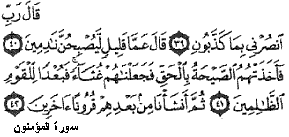 قَالَ رَبِّ
ٱنصُرْنِى بِمَا كَذَّبُونِ ٣٩ قَالَ عَمَّا قَلِيلٍ لَّيُصْبِحُنَّ نَٰدِمِينَ ٤٠
فَأَخَذَتْهُمُ ٱلصَّيْحَةُ بِٱلْحَقِّ فَجَعَلْنَٰهُمْ غُثَآءً ۚ فَبُعْدًا لِّلْقَوْمِ
ٱلظَّٰلِمِينَ ٤١ ثُمَّ أَنشَأْنَا مِنۢ بَعْدِهِمْ قُرُونًا ءَاخَرِينَ ٤٢
سورة المؤمنون